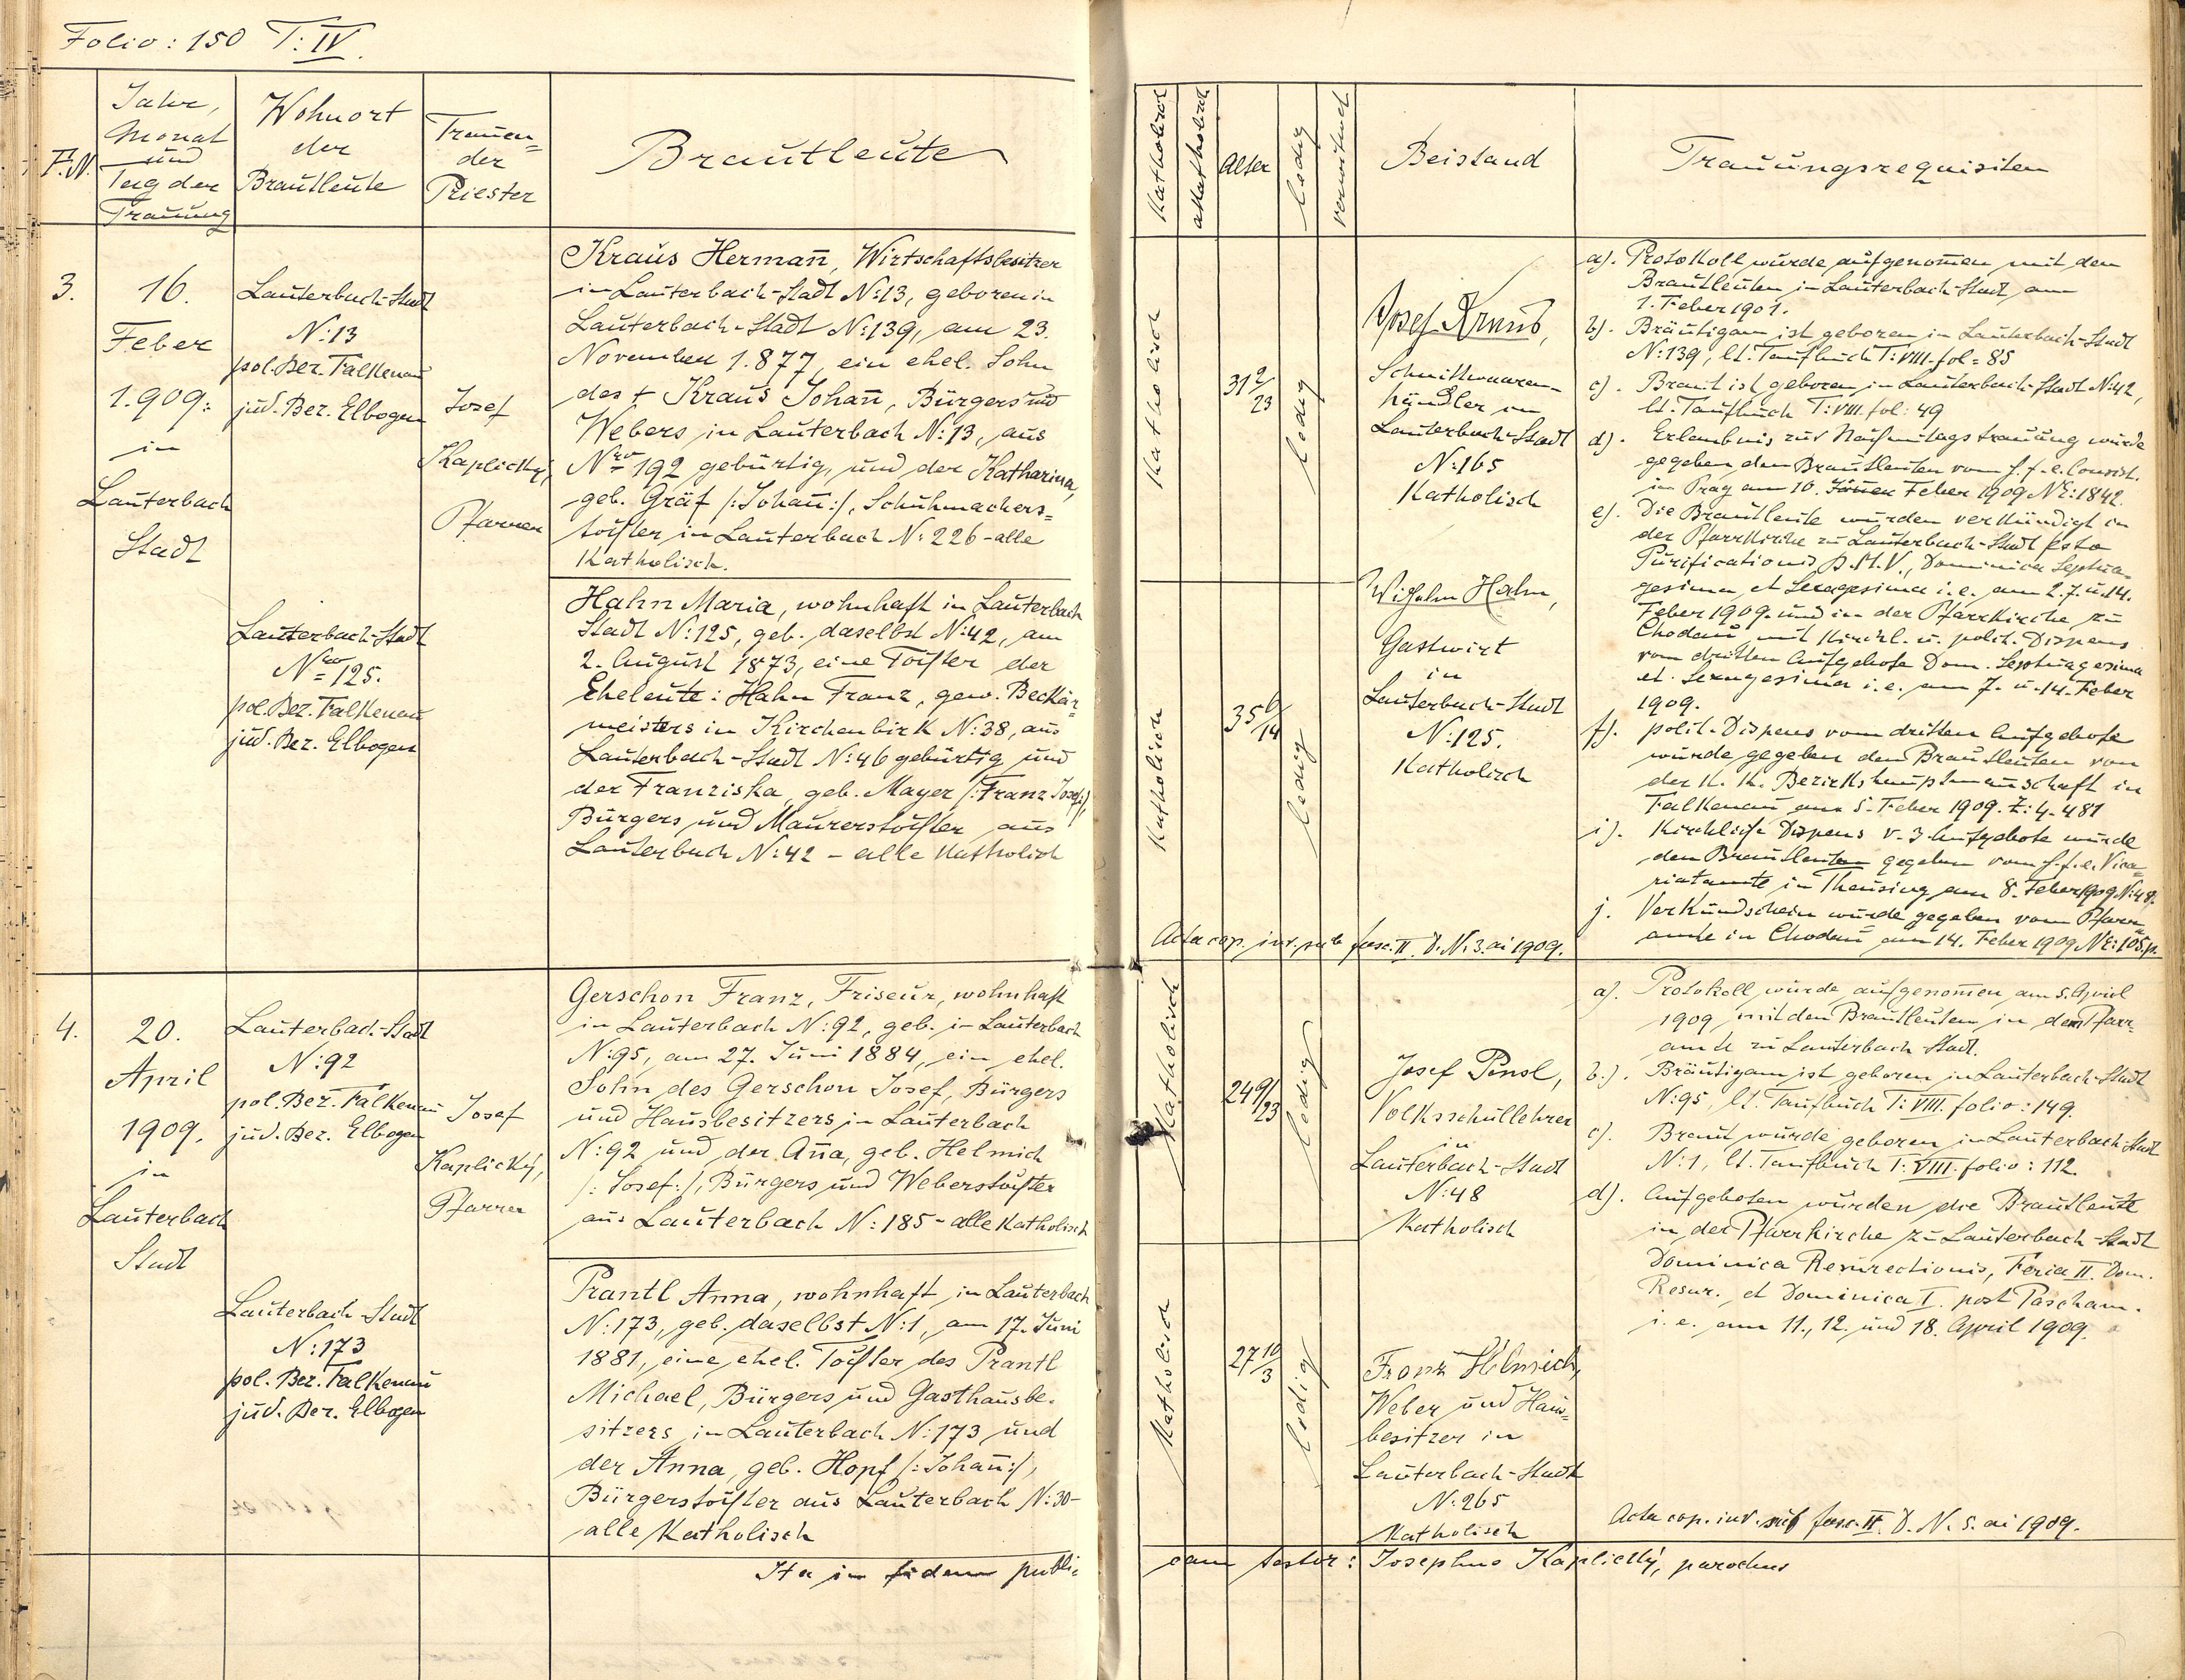 Folio: 150 T: IV.
F.N.
Jahr,
Monat
und
Tag der
Trauung
Wohnort
der
Brautleute
Trauen=
der
Priester
Brautleute
Katholisch
akatholisch
Alter
ledig
verwitwet
Beistand
Trauungsrequisiten
3.
16.
Feber
1.909.
in
Lauterbach
Stadt
Lauterbach-Stadt
N:13
pol. Bez. Falkenau
jud. Bez. Elbogen
Josef
Kaplický,
Pfarrer
Kraus Hermañ, Wirtschaftsbesitzer
in Lauterbach-Stadt N:13, geboren in
Lauterbach-Stadt N:139, am 23.
November 1.877, ein ehel. Sohn
des + Kraus Johañ, Bürgers und
Webers in Lauterbach N:13, aus
Nro 192 gebürtig, und der Katharina,
geb. Gräf /:Johañ:/, Schuhmachers=
tochter in Lauterbach N: 226 - alle
Katholisch.
Lauterbach-Stadt
Nro 125.
pol. Bez. Falkenau
jud. Bez. Elbogen
Hahn Maria, wohnhaft in Lauterbach
Stadt N:125, geb. daselbst N:42, am
2. August 1873, eine Tochter der
Eheleute: Hahn Franz, gew. Beckär=
meisters in Kirchenbirk N:38, aus
Lauterbach-Stadt N:46 gebürtig und
der Franziska, geb. Mayer /:Franz Josef:/,
Bürgers und Maurerstochter aus
Lauterbach N:42 - alle Katholisch
Katholisch
31 2/23
ledig
Josef Kraus,
Schnittwaaren-
händler in
Lauterbach-Stadt
N:165
Katholisch
Katholisch
35 6/14
ledig
Wilhelm Hahn,
Gastwirt
in
Lauterbach-Stadt
N:125.
Katholisch
a). Protokoll wurde aufgenom̄en mit den
Brautleuten in Lauterbach-Stadt am
1. Feber 1901.
b). Bräutigam ist geboren in Lauterbach-Stadt
N:139, lt. Taufbuch T: VIII. fol = 85
c). Braut ist geboren in Lauterbach-Stadt N:42,
lt. Taufbuch T: VIII. fol: 49
d). Erlaubnis zur Nachmitagstrauung wurde
gegeben den Brautleuten vom f. f. e. Consist.
in Prag am 10. Feber 1909 NE: 1842.
e). Die Brautleute wurden verkündigt in
der Pfarrkirche zu Lauterbach-Stadt festo
Purificationis B.M.V., Dominica Septua-
gesima et Sexagesima i.e. am 2. 7. u. 14.
Feber 1909. und in der Pfarrkirche zu
Chodau mit kirchl. u. polit. Dispens
vom dritten Aufgebote Dom. Septuagesima
et Sexagesima i.e. am 7. u. 14. Feber
1909.
f). polit. Dispens vom dritten Aufgebote
wurde gegeben den Brautleuten von
der K. K. Bezirkshauptmannschaft in
Falkenau am 5. Feber 1909. Z: 4.481
i). Kirchliche Dispens v. 3 Aufgebote wurde
den Brautleuten gegeben vom f. f. e. Vica=
riatamte in Theusing am 8. Feber 1909 N: 48.
j. Verkundschein wurde gegeben vom Pfarr=
amte in Chodau am 14. Feber 1909 NE: 105 p.
Acta cop. inv. sub fasc. II. D. N. 3. ai 1909.
4.
20.
April
1909.
in
Lauterbach
Stadt
Lauterbach-Stadt
N:92
pol. Bez. Falkenau
jud. Bez. Elbogen
Josef
Kaplický,
Pfarrer
Gerschon Franz, Friseur, wohnhaft
in Lauterbach N:92, geb. in Lauterbach
N:95, am 27. Juni 1884, ein ehel.
Sohn des Gerschon Josef, Bürgers
und Hausbesitzers in Lauterbach
N:92 und der Añna, geb. Helmich
/: Josef:/, Bürgers und Weberstochter
aus Lauterbach N: 185 - alle Katholisch
Lauterbach Stadt
N:173
pol. Bez. Falkenau
jud. Bez. Elbogen
Prantl Anna, wohnhaft in Lauterbach
N:173, geb. daselbst N:1, am 17. Juni
1881, eine ehel. Tochter des Prantl
Michael, Bürgers und Gasthausbe-
sitzers in Lauterbach N:173 und
der Anna, geb. Hopf /:Johañ:/,
Bürgerstochter aus Lauterbach N:30-
alle Katholisch
Katholisch
24 9/23
ledig
Josef Pensl,
Volksschullehrer
in
Lauterbach-Stadt
N:48
Katholisch
Katholisch
27 10/3
ledig
Franz Helmich,
Weber und Haus=
besitzer in
Lauterbach-Stadt
N:265
Katholisch
a). Protokoll wurde aufgenom̄en am 5. April
1909 mit den Brautleuten in dem Pfarr-
amte zu Lauterbach Stadt.
b.). Bräutigam ist geboren in Lauterbach-Stadt
N:95, lt. Taufbuch T: VIII. folio: 149.
c). Braut wurde geboren in Lauterbach-Stadt
N:1, lt. Taufbuch T: VIII. folio: 112.
d). Aufgeboten wurden die Brautleute
in der Pfarrkirche zu Lauterbach-Stadt
Dominica Resurectionis, Feria II. Dom.
Resur. et Dominica I. post Pascham.
i. e. am 11., 12. und 18. April 1909.
Acta cop. inv. sub fasc. II. D. N. 5. ai 1909.
Ita in fidem publi-
cam testor: Josephus Kaplický, parochus